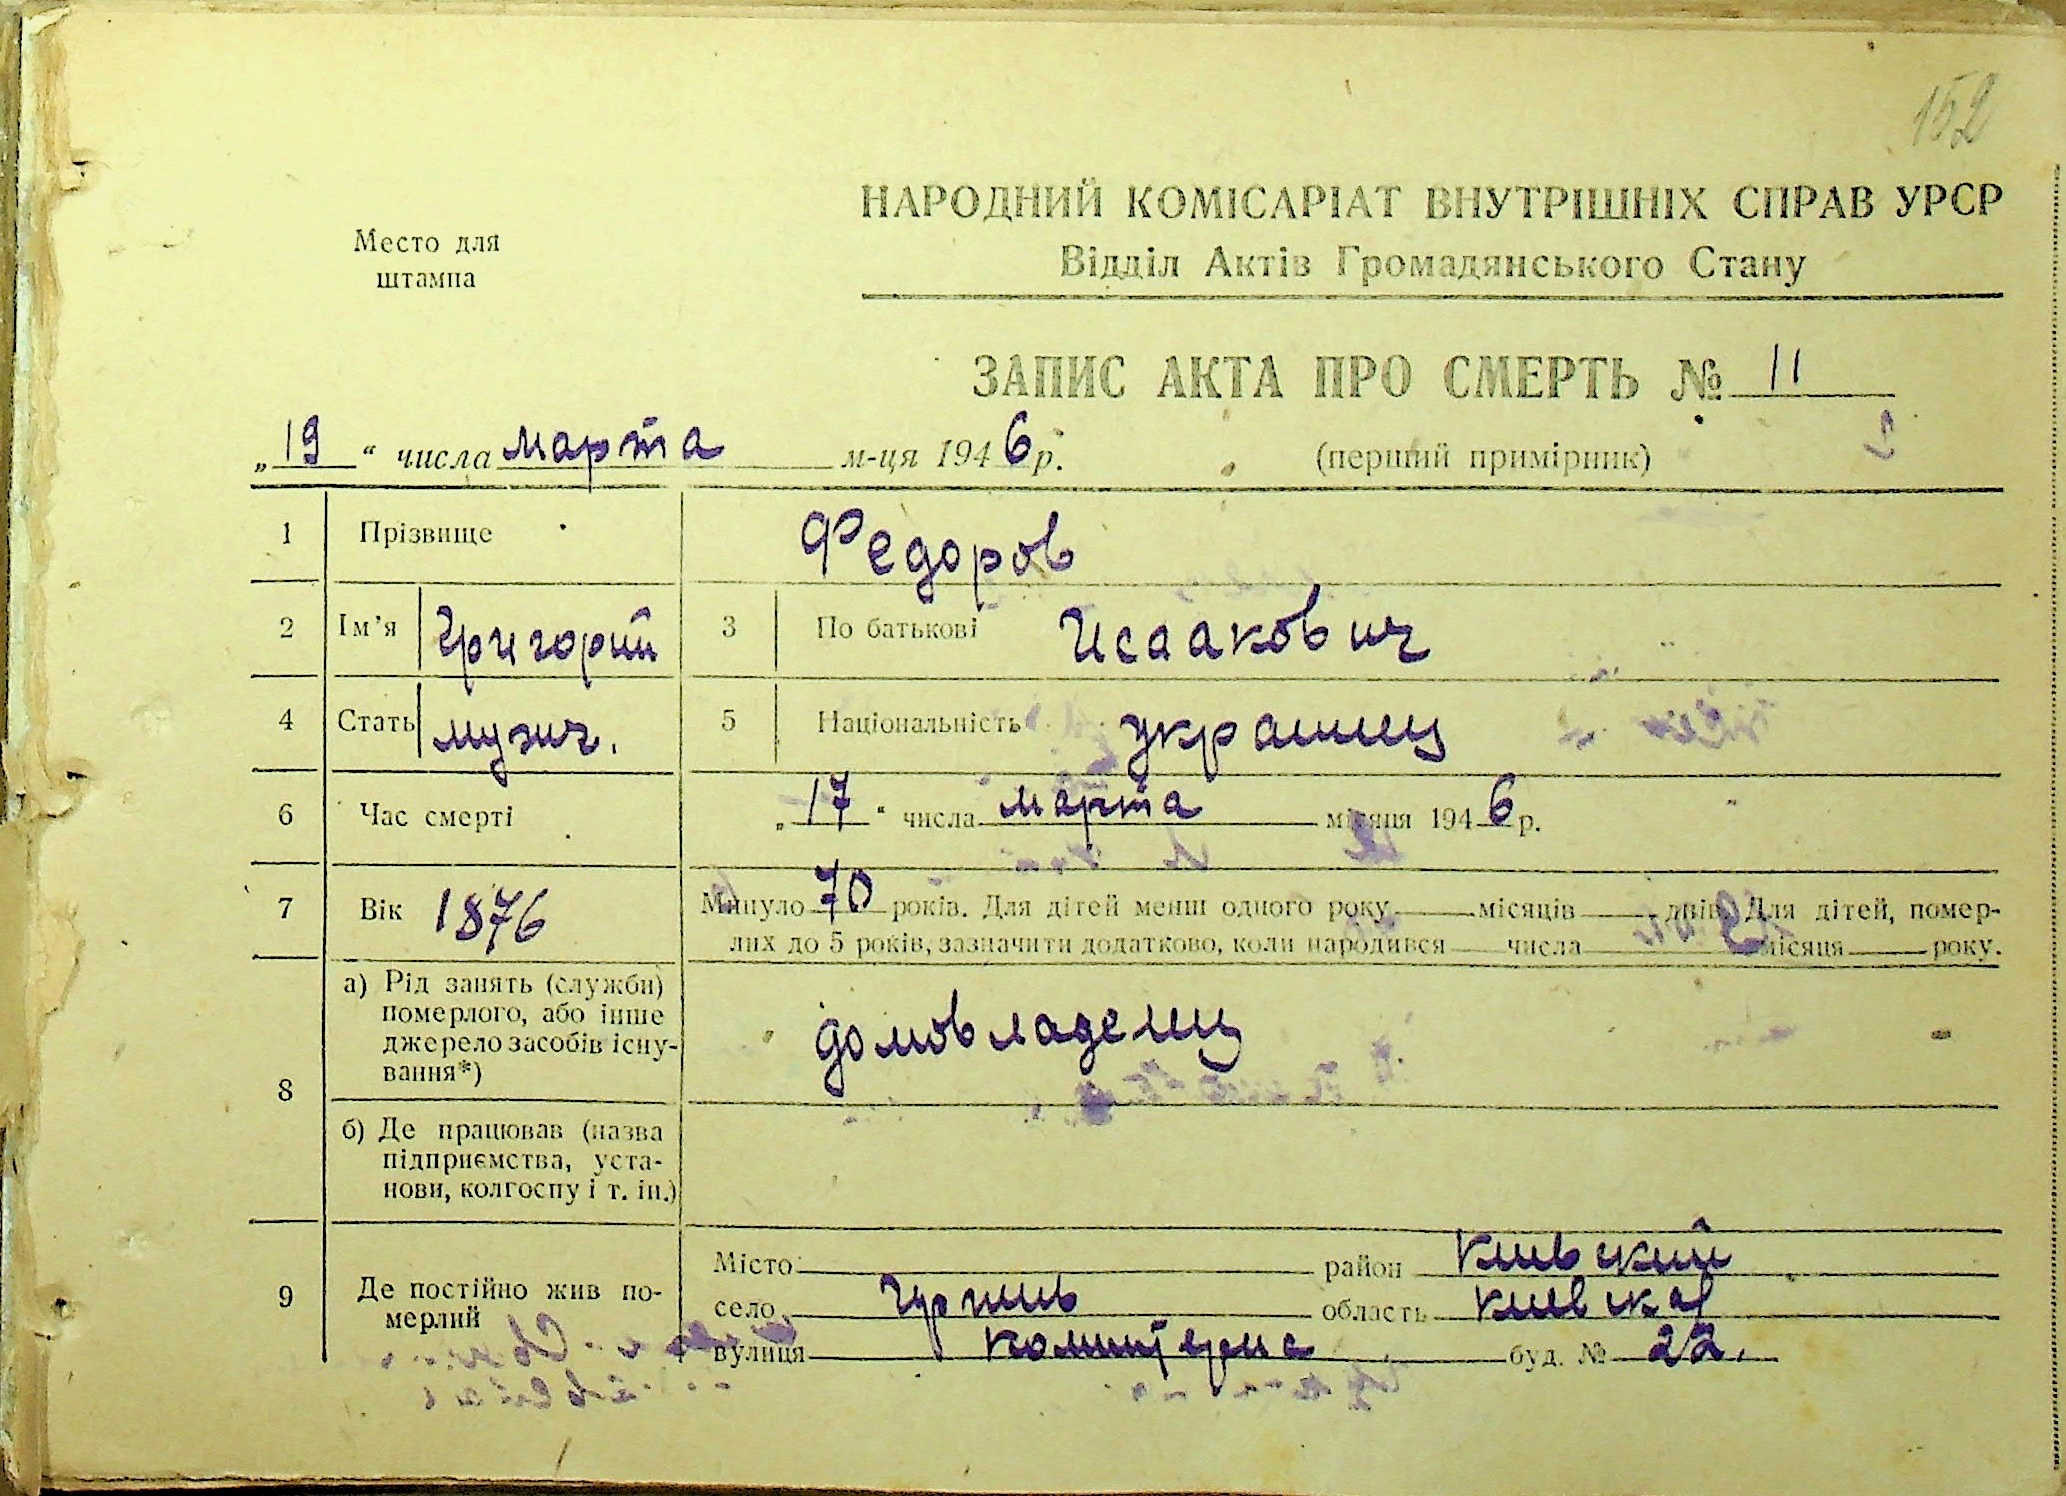 152
НАРОДНИЙ КОМІСАРІАТ ВНУТРІШНІХ СПРАВ УРСР
Відділ Актів Громадянського Стану
Место для
штампа
ЗАПИС АКТА ПРО СМЕРТЬ № 11
„19“ числа марта м-ця 1946 р. (перший примірник)
1 Прізвище Федоров
2 Ім'я Григорий 3 По батькові Исаакович
4 Стать мужч. 5 Національність украинец
6 Час смерті „17“ числа марта місяця 1946 р.
7 Вік 1876 Минуло 70 років. Для дітей менш одного року місяців днів. Для дітей, помер-
лих до 5 років, зазначити додатково, коли народився числа місяця року.
8 а) Рід занять (служби)
померлого, або інше
джерело засобів існу-
вання*) домовладелец
б) Де працював (назва
підприємства, уста-
нови, колгоспу і т. ін.)
9 Де постійно жив по-
мерлий
Місто район Киевский
село область Киевская
вулиця Коминтерна буд. № 22.